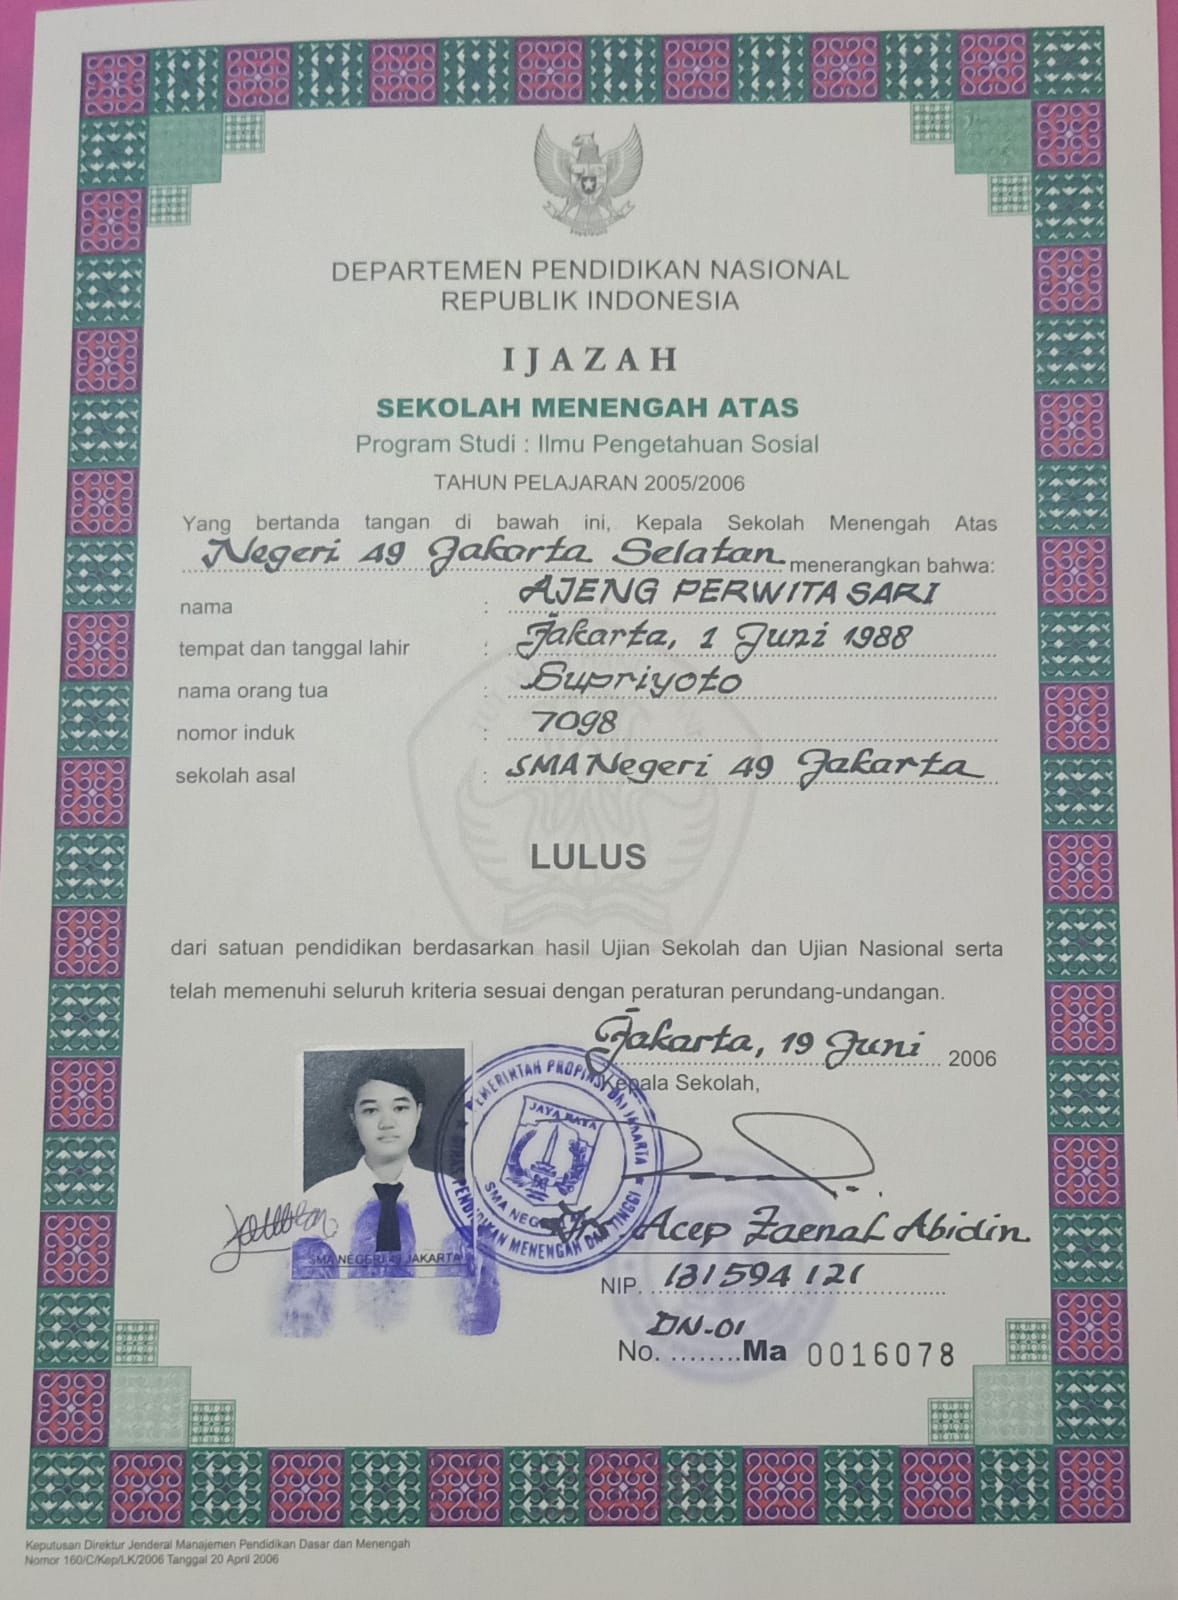 DEPARTEMEN PENDIDIKAN NASIONAL
REPUBLIK INDONESIA
IJAZAH
SEKOLAH MENENGAH ATAS
Program Studi : Ilmu Pengetahuan Sosial
TAHUN PELAJARAN 2005/2006
Yang bertanda tangan di bawah ini, Kepala Sekolah Menengah Atas
Negeri 49 Jakarta Selatan menerangkan bahwa:
nama : AJENG PERWITA SARI
tempat dan tanggal lahir : Jakarta, 1 Juni 1988
nama orang tua : Supriyoto
nomor induk : 7098
sekolah asal : SMA Negeri 49 Jakarta
LULUS
dari satuan pendidikan berdasarkan hasil Ujian Sekolah dan Ujian Nasional serta
telah memenuhi seluruh kriteria sesuai dengan peraturan perundang-undangan.
Jakarta, 19 Juni 2006
Kepala Sekolah,
PEMERINTAH PROPINSI DKI JAKARTA
JAYA RAYA
SMA NEGERI
PENDIDIKAN MENENGAH DAN TINGGI
SMA NEGERI 49 JAKARTA
Acep Zaenal Abidin
NIP. 131594121
DN-01
No. ........Ma 0016078
Keputusan Direktur Jenderal Manajemen Pendidikan Dasar dan Menengah
Nomor 160/C/Kep/LK/2006 Tanggal 20 April 2006